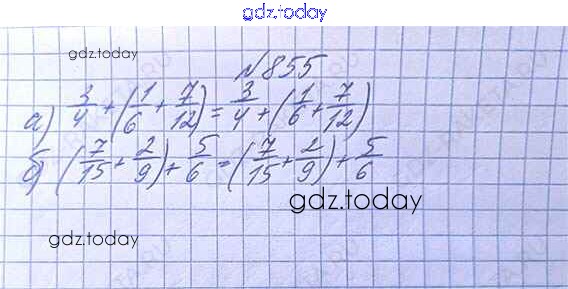 gdz.today
gdz.today
№855
а) 3/4 + (1/6 + 7/12) = 3/4 + (1/6 + 7/12)
б) (7/15 + 2/9) + 5/6 = (7/15 + 2/9) + 5/6
gdz.today
gdz.today